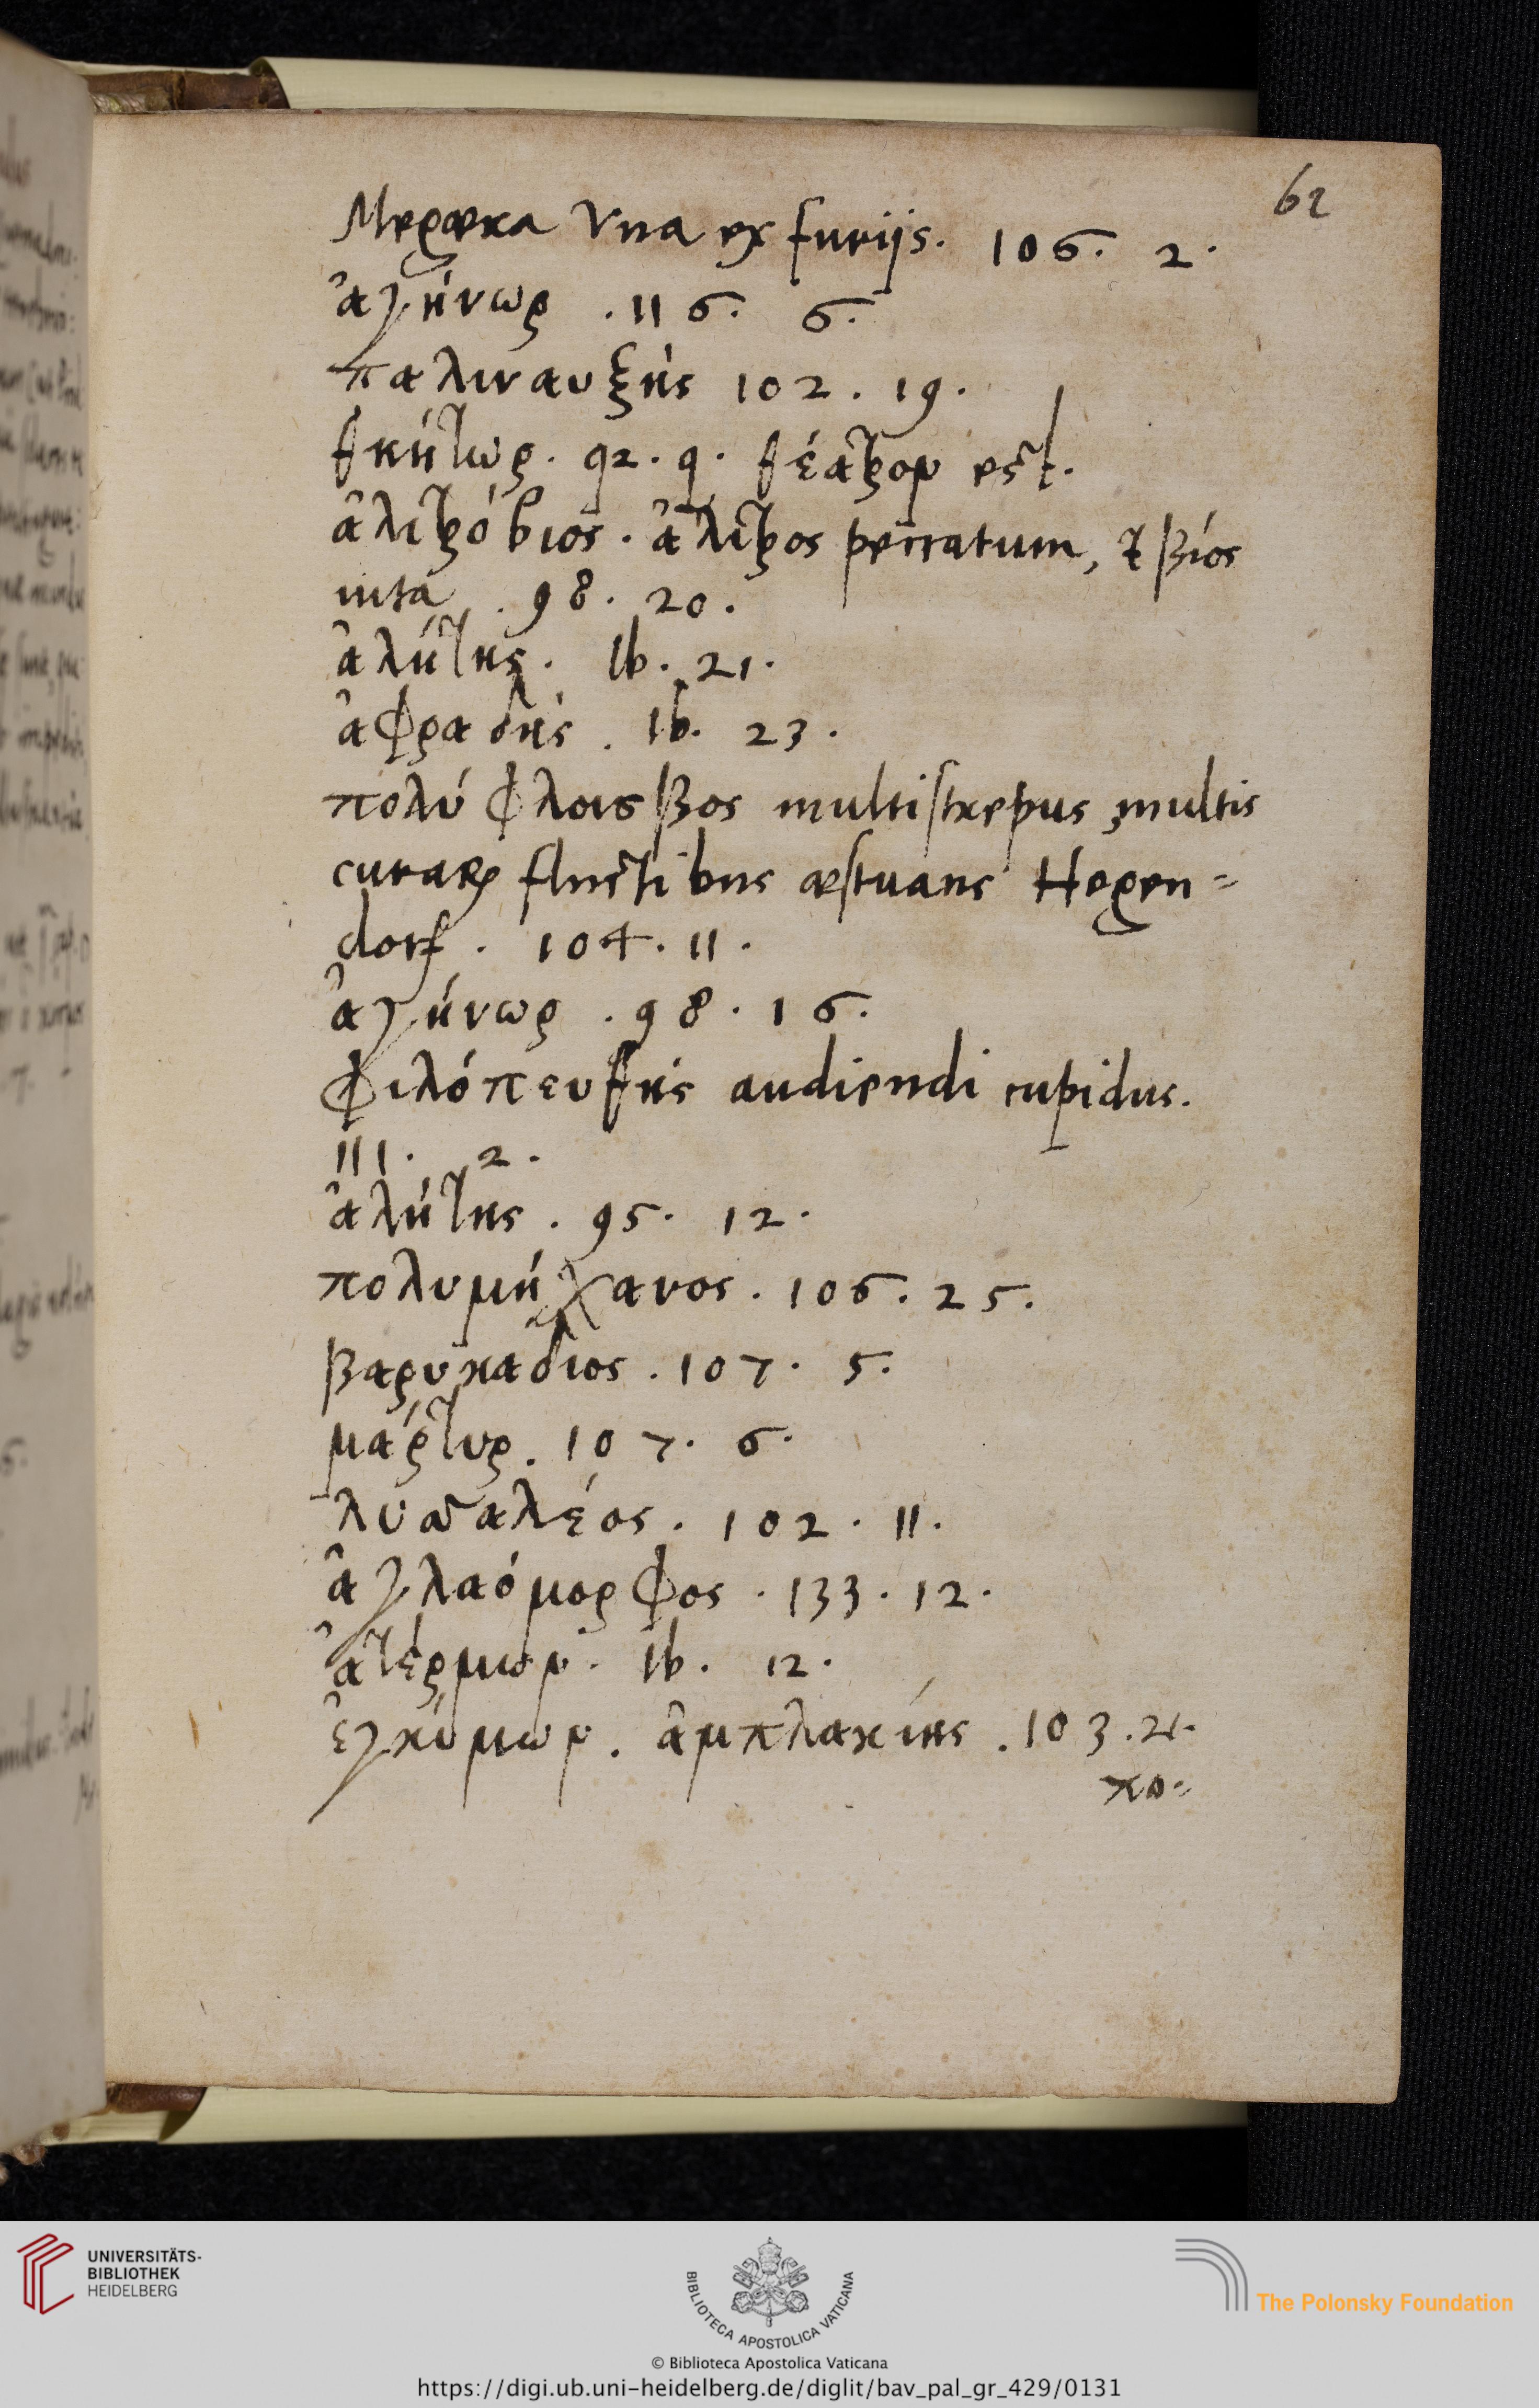 62
Megæra Vna ex furijs. 106. 2.
ἀγήνωρ . 116. 6.
παλιναυξής 102 . 19.
θηήτωρ . 92 . 9 . θέατρον est.
ἀλιτρόβιος . ἀλιτρος peccatum, & βίος
uita . 98 . 20 .
ἀλήτης . Ib . 21 .
ἀφραδής . Ib. 23 .
πολύφλοισβος multistrepus multis
curarꝝ fluctibus æstuans Hegen=
dorf . 104 . 11 .
ἀγήνωρ . 98 . 16 .
φιλόπευθής audiendi cupidus.
111 . 2 .
ἀλήτης . 95 . 12 .
πολυμήχανος . 106 . 25 .
βαρυκάδιος . 107 . 5 .
μάρτυρ . 107 . 6 .
λυσσαλέος . 102 . 11 .
ἀγλαόμορφος . 133 . 12 .
ἀτέρμων . Ib . 12 .
ἐγκύμων . ἀμπλακίης . 103 . 21 .
UNIVERSITÄTS-
BIBLIOTHEK
HEIDELBERG
BIBLIOTECA APOSTOLICA VATICANA
The Polonsky Foundation
© Biblioteca Apostolica Vaticana
https://digi.ub.uni-heidelberg.de/diglit/bav_pal_gr_429/0131